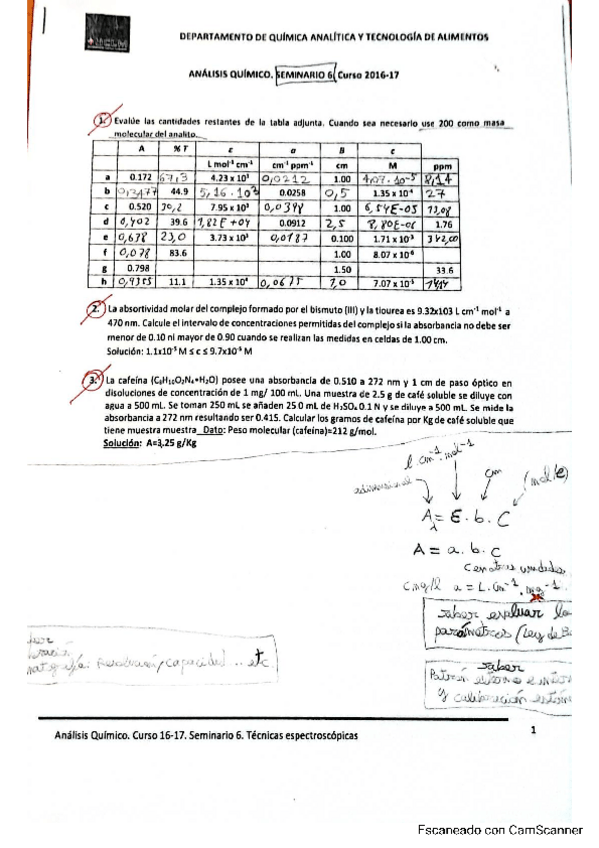 DEPARTAMENTO DE QUÍMICA ANALÍTICA Y TECNOLOGÍA DE ALIMENTOS
ANÁLISIS QUÍMICO. SEMINARIO 6. Curso 2016-17
1. Evalúe las cantidades restantes de la tabla adjunta. Cuando sea necesario use 200 como masa
molecular del analito.
A % T ε a B c
L mol⁻¹ cm⁻¹ cm⁻¹ ppm⁻¹ cm M ppm
a 0.172 67,3 4.23 x 10³ 0,0212 1.00 4,07·10⁻⁵ 8,14
b 0,3477 44.9 5,16·10³ 0.0258 0,5 1.35 x 10⁻⁴ 27
c 0.520 30,2 7.95 x 10³ 0,0398 1.00 6,54E-05 13,08
d 0,402 39.6 1,82E+04 0.0912 2,5 8,80E-06 1.76
e 0,638 23,0 3.73 x 10³ 0,0187 0.100 1.71 x 10⁻³ 342,00
f 0,078 83.6 1.00 8.07 x 10⁻⁶
g 0.798 1.50 33.6
h 0,9355 11.1 1.35 x 10⁴ 0,0675 1,0 7.07 x 10⁻⁵ 14,14
2. La absortividad molar del complejo formado por el bismuto (III) y la tiourea es 9.32x103 L cm⁻¹ mol⁻¹ a
470 nm. Calcule el intervalo de concentraciones permitidas del complejo si la absorbancia no debe ser
menor de 0.10 ni mayor de 0.90 cuando se realizan las medidas en celdas de 1.00 cm.
Solución: 1.1x10⁻⁵ M ≤ c ≤ 9.7x10⁻⁵ M
3. La cafeína (C₈H₁₀O₂N₄•H₂O) posee una absorbancia de 0.510 a 272 nm y 1 cm de paso óptico en
disoluciones de concentración de 1 mg/ 100 mL. Una muestra de 2.5 g de café soluble se diluye con
agua a 500 mL. Se toman 250 mL se añaden 25 0 mL de H₂SO₄ 0.1 N y se diluye a 500 mL. Se mide la
absorbancia a 272 nm resultando ser 0.415. Calcular los gramos de cafeína por Kg de café soluble que
tiene muestra muestra Dato: Peso molecular (cafeína)=212 g/mol.
Solución: A=3,25 g/Kg
l·cm⁻¹·mol⁻¹
adimensional
cm
(mol/l)
A = ε·b·C
λ
A = a.b.c
Con otras unidades
C mg/l a = L·cm⁻¹·mg⁻¹
saber evaluar
parámetros (Ley de
Resolución/capacidad ... etc
saber
Patrón
y calibración
Análisis Químico. Curso 16-17. Seminario 6. Técnicas espectroscópicas
1
Escaneado con CamScanner